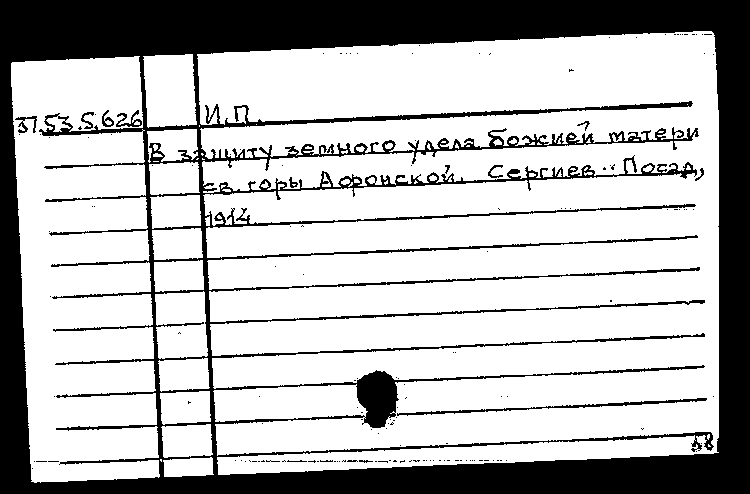 37.53.5.626 И.П.
В защиту земного удела Божией матери
св. горы Афонской. Сергиев-Посад,
1914.